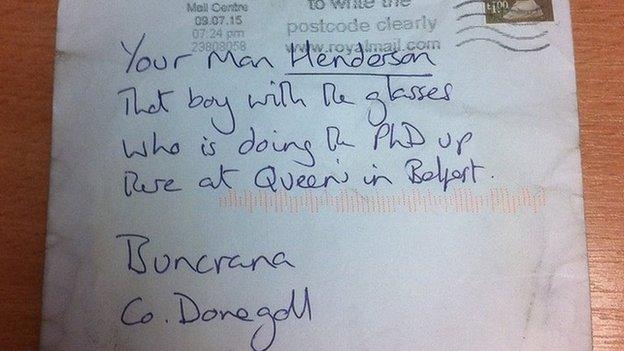 Mail Centre
09.07.15
07:24 pm
23808058
to write the
postcode clearly
www.royalmail.com
£1.00
Your Man Henderson
That boy with the glasses
who is doing the PhD up
there at Queen's in Belfast.
Buncrana
Co. Donegall